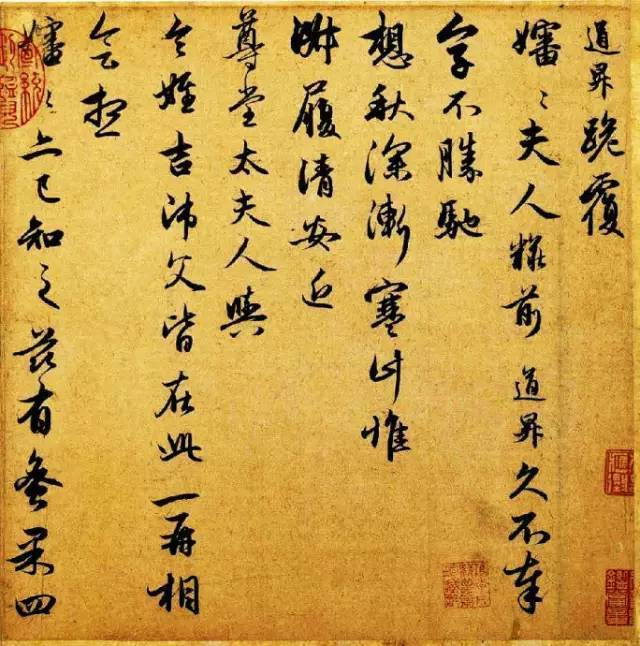 道昇跪覆
嬸〻夫人粧前道昇久不奉
字不勝馳
想秋深漸寒計惟
淑履清安近
尊堂太夫人與
令姪吉師父皆在此一再相
會想
嬸〻亦已知之茲有蜜果四